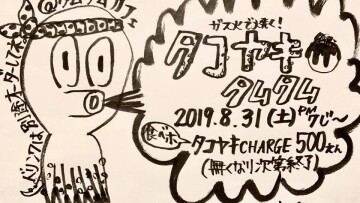 @タムタムカフェ
ガス火で焼く!
タコヤキ
タムタム
2019.8.31(土)PM7じ〜
食べホータコヤキCHARGE 500えん
(無くなり次第終了)
ドリンクは別途オーダーしてネ